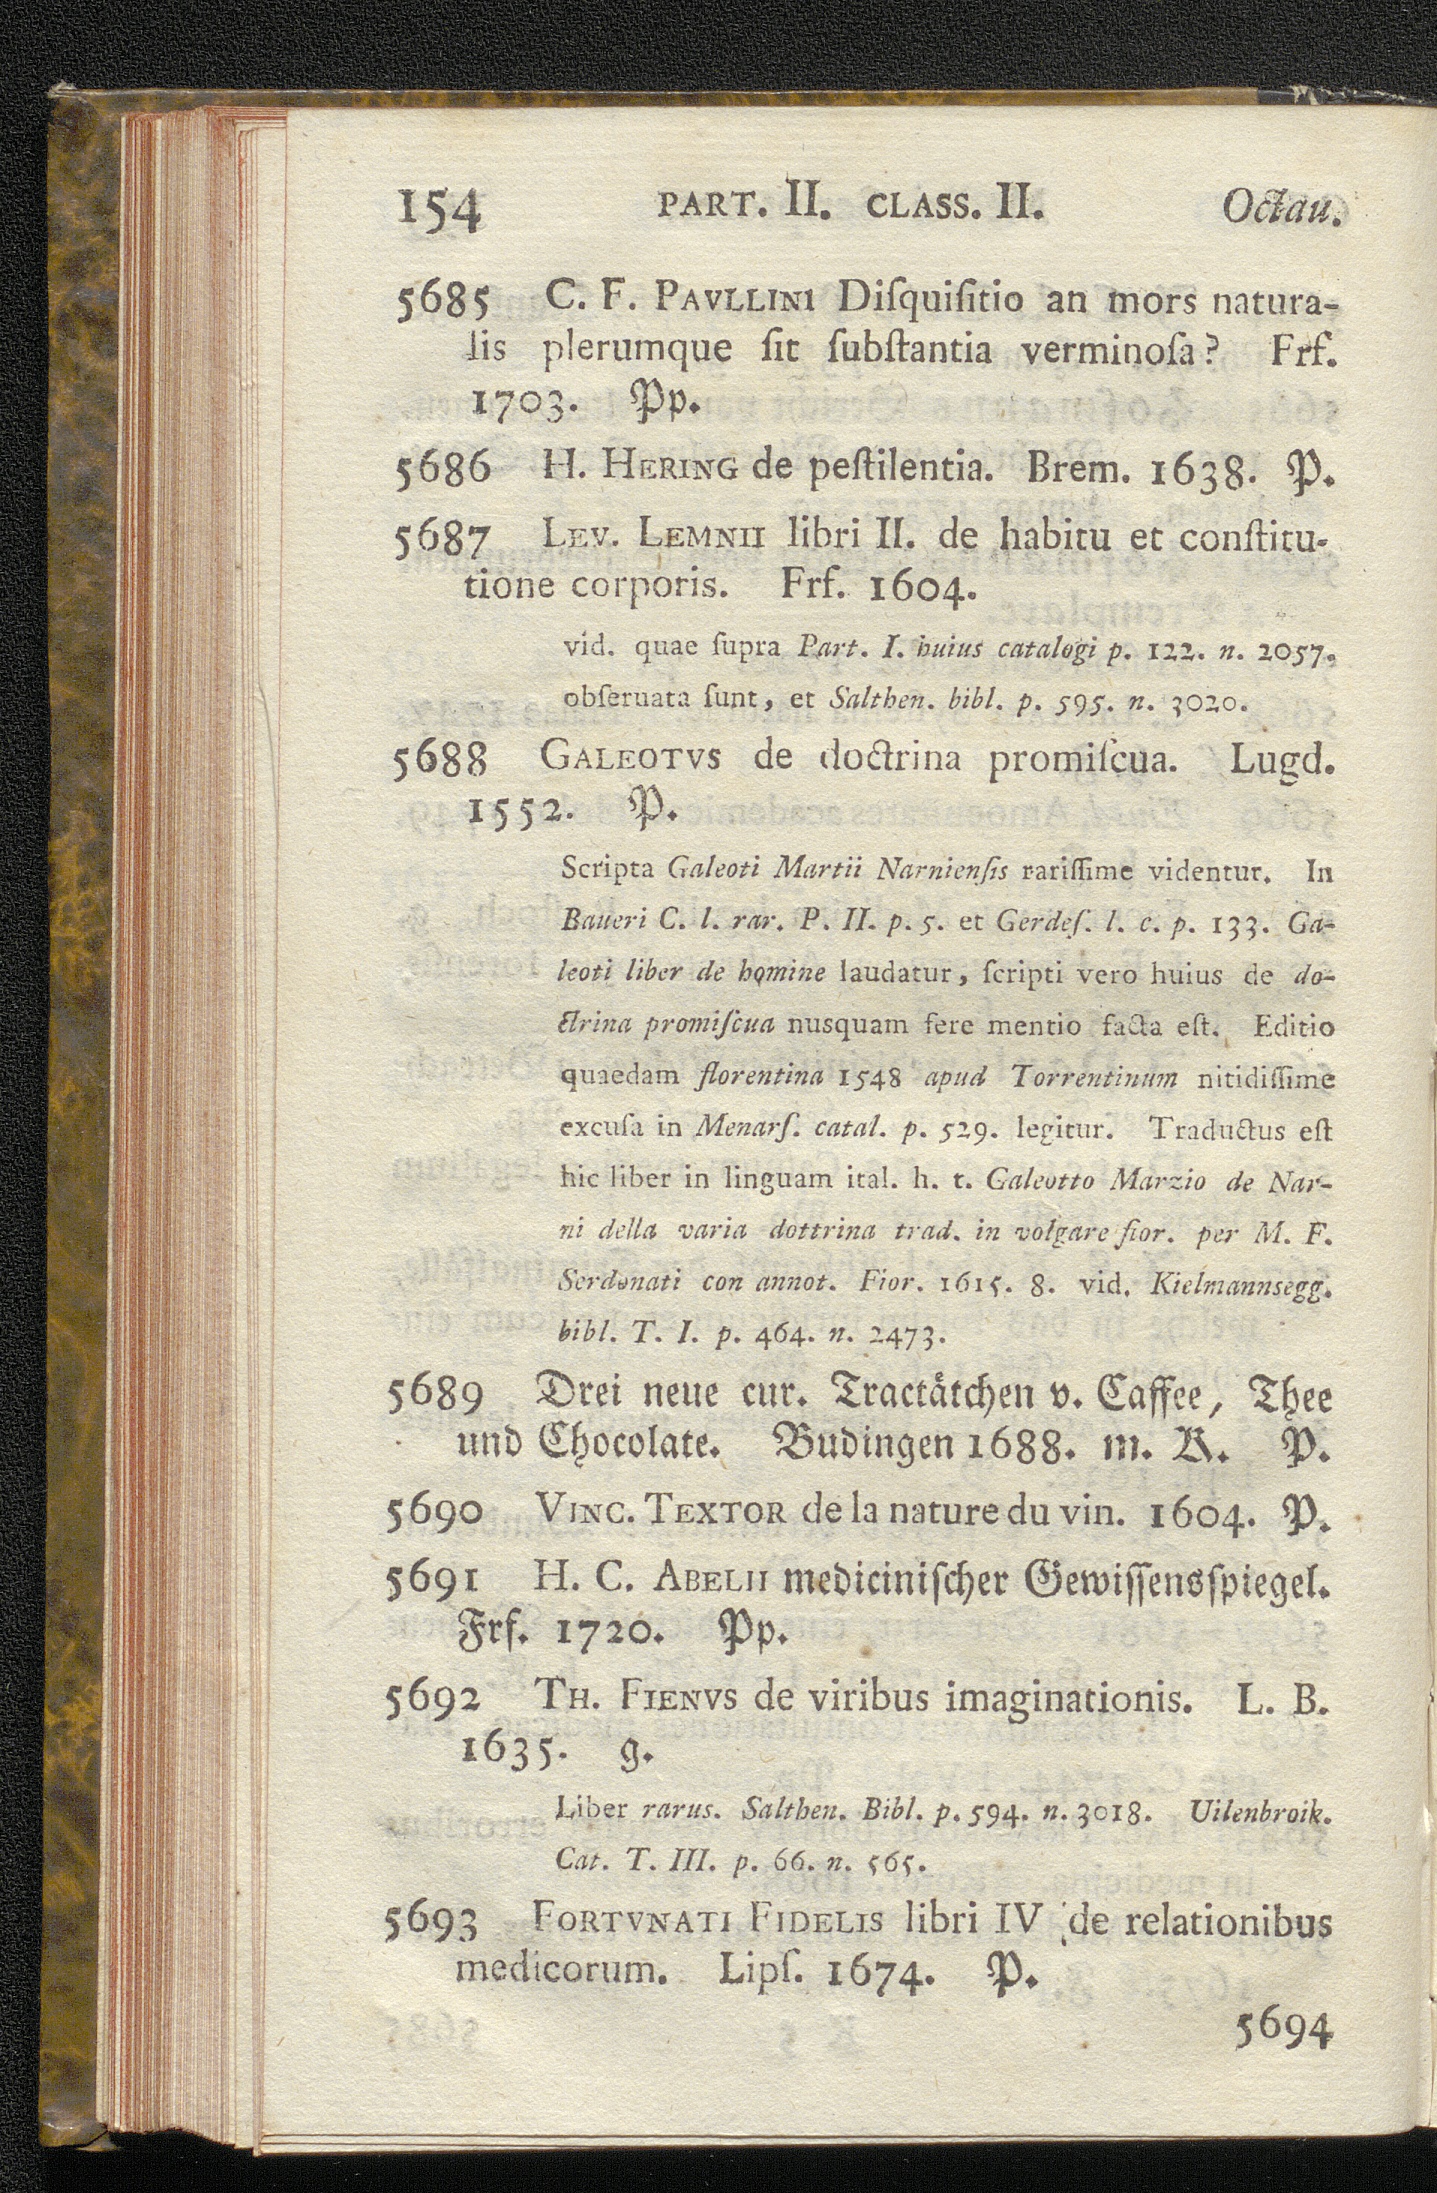 154 PART. II. CLASS. II. Octau.
5685 C. F. PAVLLINI Diſquiſitio an mors natura-
lis plerumque ſit ſubſtantia verminoſa? Frf.
1703. Pp.
5686 H. HERING de peſtilentia. Brem. 1638. P.
5687 LEV. LEMNII libri II. de habitu et conſtitu-
tione corporis. Frf. 1604.
vid. quae ſupra Part. I. huius catalogi p. 122. n. 2057.
obſeruata ſunt, et Salthen. bibl. p. 595. n. 3020.
5688 GALEOTVS de doctrina promiſcua. Lugd.
1552. P.
Scripta Galeoti Martii Narnienſis rariſſime videntur. In
Baueri C. l. rar. P. II. p. 5. et Gerdeſ. l. c. p. 133. Ga-
leoti liber de homine laudatur, ſcripti vero huius de do-
ctrina promiſcua nusquam fere mentio facta eſt. Editio
quaedam florentina 1548 apud Torrentinum nitidiſſime
excuſa in Menarſ. catal. p. 529. legitur. Traductus eſt
hic liber in linguam ital. h. t. Galeotto Marzio de Nar-
ni della varia dottrina trad. in volgare fior. per M. F.
Serdonati con annot. Fior. 1615. 8. vid. Kielmannsegg.
bibl. T. I. p. 464. n. 2473.
5689 Drei neue cur. Tractätchen v. Caffee, Thee
und Chocolate. Budingen 1688. m. K. P.
5690 VINC. TEXTOR de la nature du vin. 1604. P.
5691 H. C. ABELII mediciniſcher Gewiſſensſpiegel.
Frf. 1720. Pp.
5692 TH. FIENVS de viribus imaginationis. L. B.
1635. g.
Liber rarus. Salthen. Bibl. p. 594. n. 3018. Uilenbroik.
Cat. T. III. p. 66. n. 565.
5693 FORTVNATI FIDELIS libri IV de relationibus
medicorum. Lipſ. 1674. P.
5694